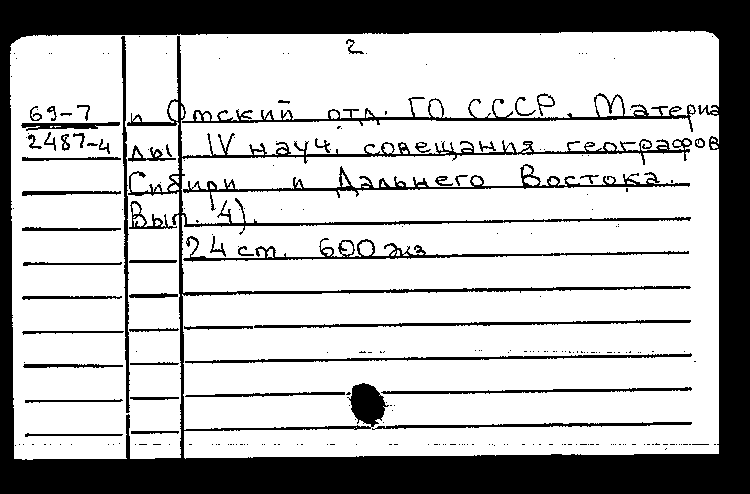 2
69-7 и Омский отд. ГО СССР. Материа
2487-4 лы IV науч. совещания географов
Сибири и Дальнего Востока.
Вып. 4).
24 ст. 600 экз